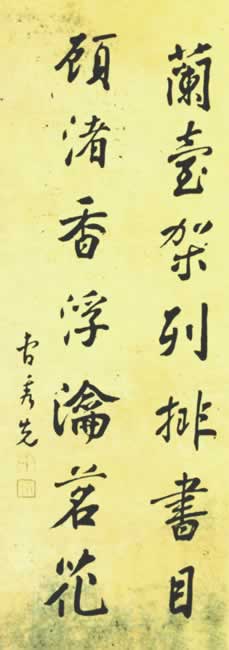 蘭臺架列排書目
顧渚香浮瀹茗花
曹秀先